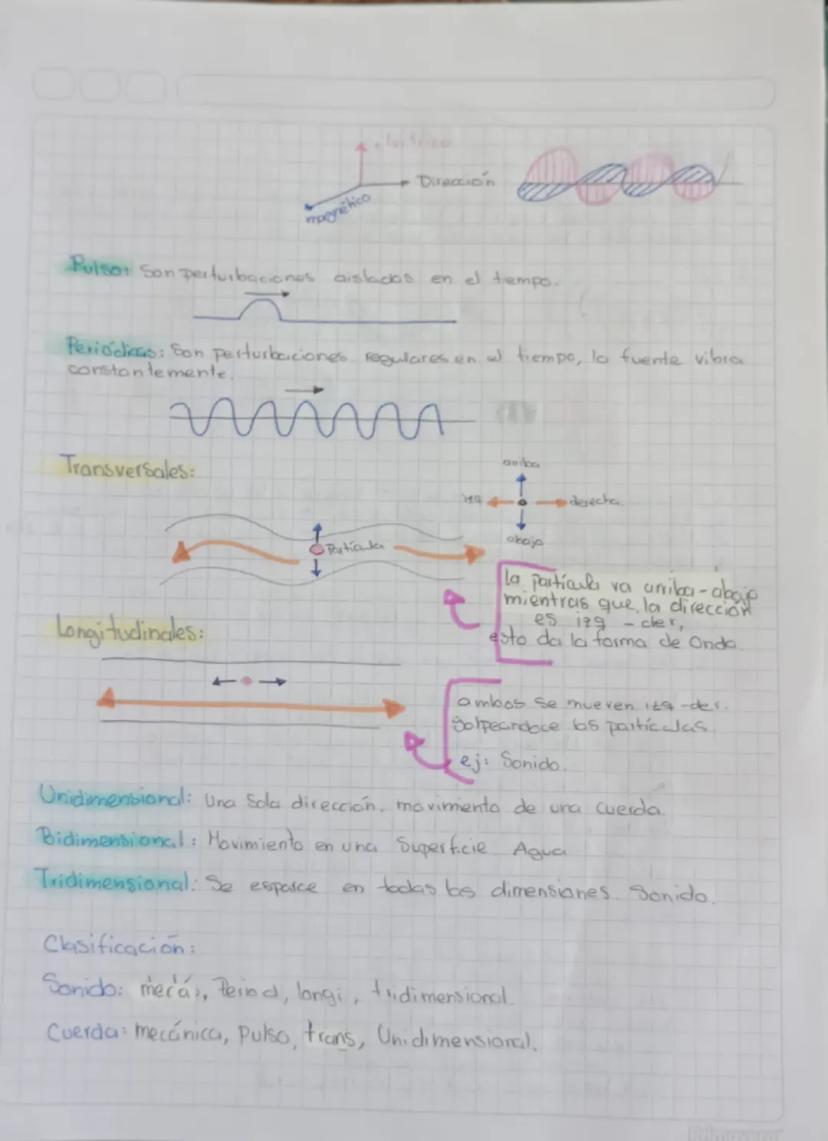 eléctrico
Dirección
magnético
Pulso: Son perturbaciones aisladas en el tiempo.
Periódicas: Son perturbaciones regulares en el tiempo, la fuente vibra
constantemente.
Transversales:
arriba
izq
derecha
abajo
Partícula
la partícula va arriba-abajo
mientras que la dirección
es izq - der,
esto da la forma de Onda.
Longitudinales:
ambos se mueven izq-der.
golpeandoce las partículas.
ej: Sonido.
Unidimensional: Una sola dirección. movimiento de una cuerda.
Bidimensional: Movimiento en una Superficie Agua
Tridimensional: Se esparce en todas las dimensiones. Sonido.
Clasificación:
Sonido: mecá, Period, longi, tridimensional.
Cuerda: mecánica, Pulso, trans, Unidimensional.